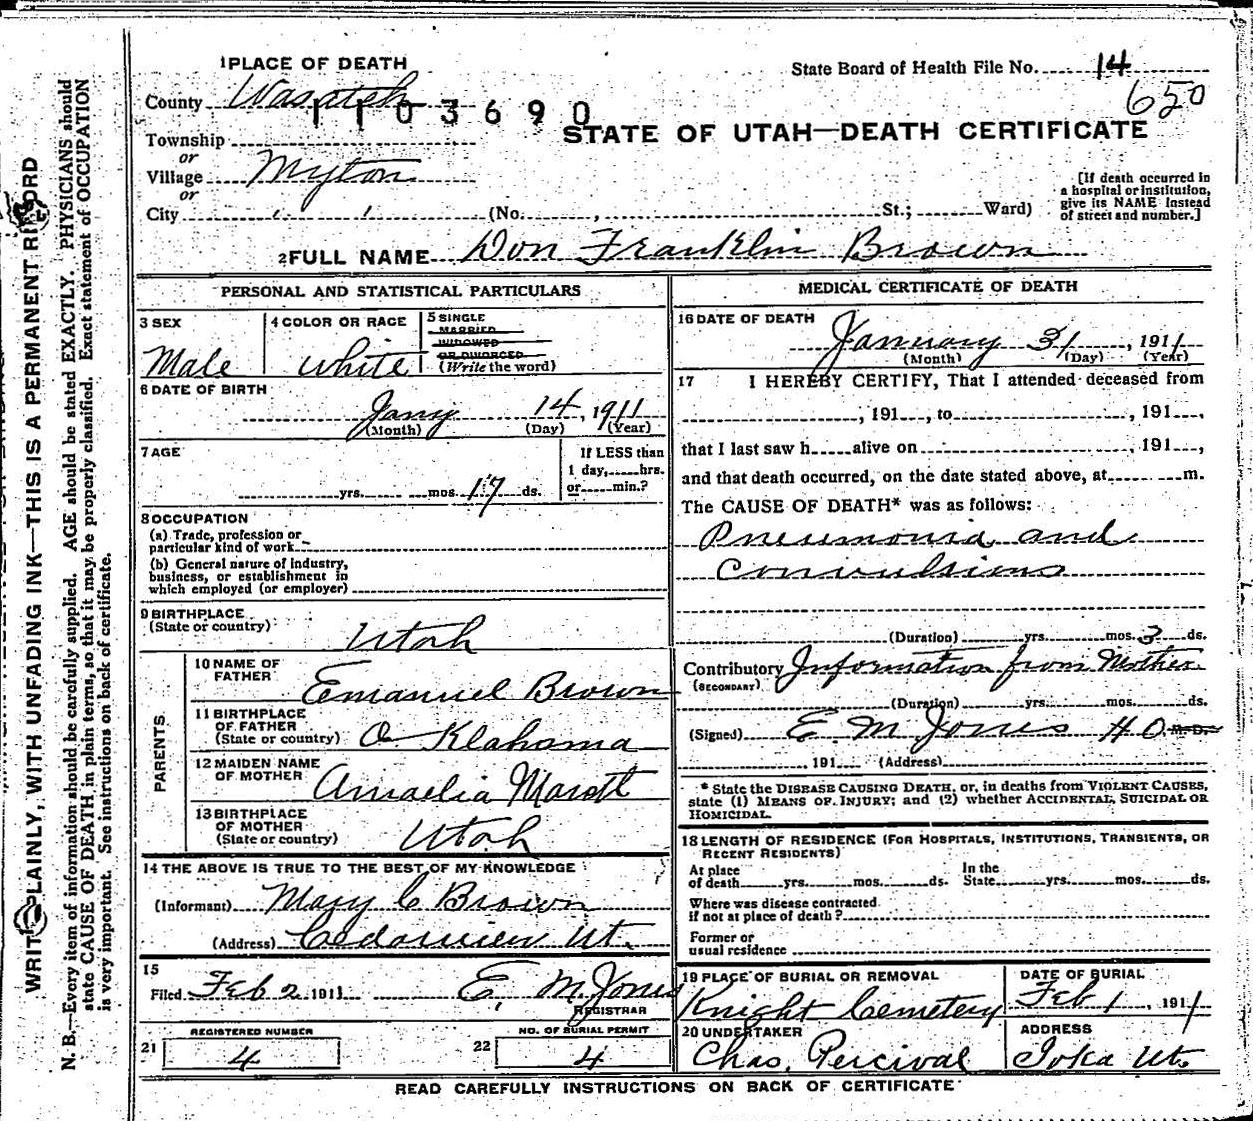 1 PLACE OF DEATH
State Board of Health File No. 14
650
County Wasatch
1103690
STATE OF UTAH—DEATH CERTIFICATE
Township
or
Village Myton
or
City (No. , St.; Ward)
[If death occurred in a hospital or institution, give its NAME instead of street and number.]
2 FULL NAME Don Franklin Brown
PERSONAL AND STATISTICAL PARTICULARS
3 SEX Male
4 COLOR OR RACE White
5 SINGLE
MARRIED
WIDOWED
OR DIVORCED
(Write the word)
6 DATE OF BIRTH
Jany 14, 1911
(Month) (Day) (Year)
7 AGE
yrs. mos. 17 ds.
If LESS than
1 day, hrs.
or min.?
8 OCCUPATION
(a) Trade, profession or
particular kind of work
(b) General nature of industry,
business, or establishment in
which employed (or employer)
9 BIRTHPLACE
(State or country) Utah
PARENTS
10 NAME OF
FATHER Emanuel Brown
11 BIRTHPLACE
OF FATHER
(State or country) Oklahama
12 MAIDEN NAME
OF MOTHER Amaelia
13 BIRTHPLACE
OF MOTHER
(State or country) Utah
14 THE ABOVE IS TRUE TO THE BEST OF MY KNOWLEDGE
(Informant) Mary C Brown
(Address) Cedarview Ut.
15
Filed Feb 2 1911 E. M. Jones
REGISTRAR
REGISTERED NUMBER
21 4
NO. OF BURIAL PERMIT
22 4
MEDICAL CERTIFICATE OF DEATH
16 DATE OF DEATH
January 31, 1911
(Month) (Day) (Year)
17 I HEREBY CERTIFY, That I attended deceased from
, 191 , to , 191 ,
that I last saw h alive on , 191 ,
and that death occurred, on the date stated above, at m.
The CAUSE OF DEATH* was as follows:
Pneumonia and
Convulsions
(Duration) yrs. mos. 3 ds.
Contributory Information from Mother
(SECONDARY)
(Duration) yrs. mos. ds.
(Signed) E. M Jones H O M. D.
, 191 (Address)
* State the DISEASE CAUSING DEATH, or, in deaths from VIOLENT CAUSES,
state (1) MEANS OF INJURY; and (2) whether ACCIDENTAL, SUICIDAL OR
HOMICIDAL.
18 LENGTH OF RESIDENCE (FOR HOSPITALS, INSTITUTIONS, TRANSIENTS, OR
RECENT RESIDENTS)
At place
of death yrs. mos. ds.
In the
State yrs. mos. ds.
Where was disease contracted
if not at place of death?
Former or
usual residence
19 PLACE OF BURIAL OR REMOVAL
Knight Cemetery
DATE OF BURIAL
Feb 1, 1911
20 UNDERTAKER
Chas. Percival
ADDRESS
Ioka Ut.
READ CAREFULLY INSTRUCTIONS ON BACK OF CERTIFICATE
PLAINLY, WITH UNFADING INK—THIS IS A PERMANENT
N. B.—Every item of information should be carefully supplied. AGE should be stated EXACTLY. PHYSICIANS should
state CAUSE OF DEATH in plain terms, so that it may be properly classified. Exact statement of OCCUPATION
is very important. See instructions on back of certificate.